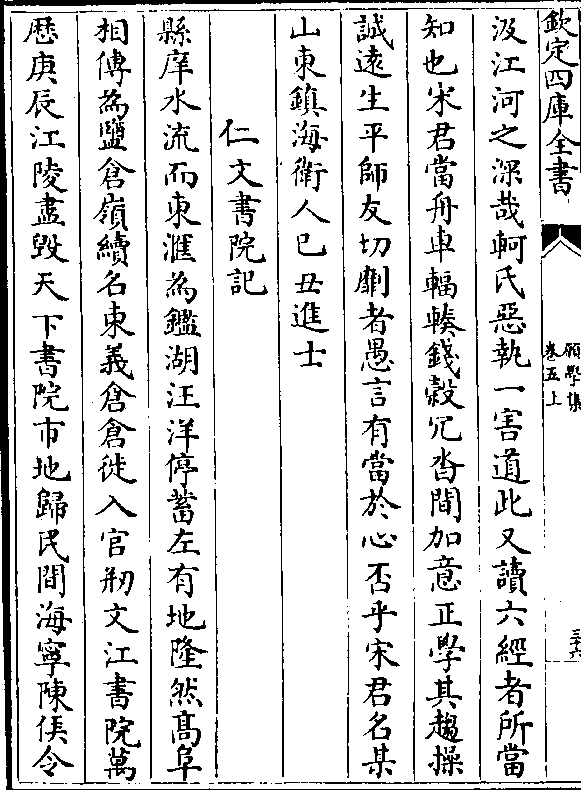 欽定四庫全書
願學集
卷五上
三十六
汲江河之深哉軻氏惡執一害道此又讀六經者所當
知也宋君當舟車輻輳錢穀冗沓間加意正學其趨操
誠遠生平師友切劘者愚言有當於心否乎宋君名某
山東鎮海衛人己丑進士
仁文書院記
縣庠水流而東滙為鑑湖汪洋停蓄左有地隆然髙阜
相傳為鹽倉嶺續名東義倉倉徙入官剏文江書院萬
厯庚辰江陵盡毀天下書院市地歸民間海寧陳侯令